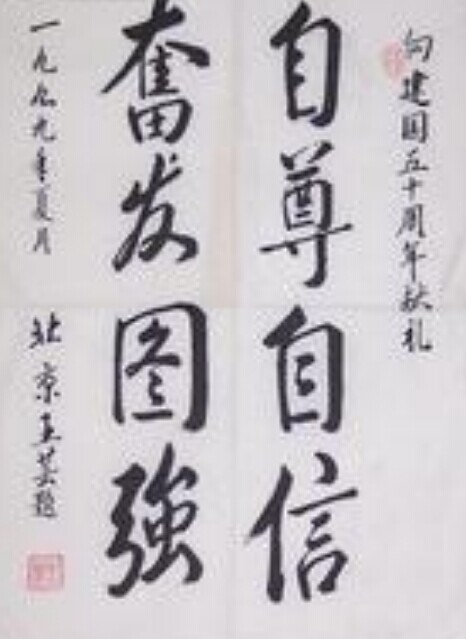 向建国五十周年献礼
自尊自信
奋发图強
一九九九年夏月
北京王芸题